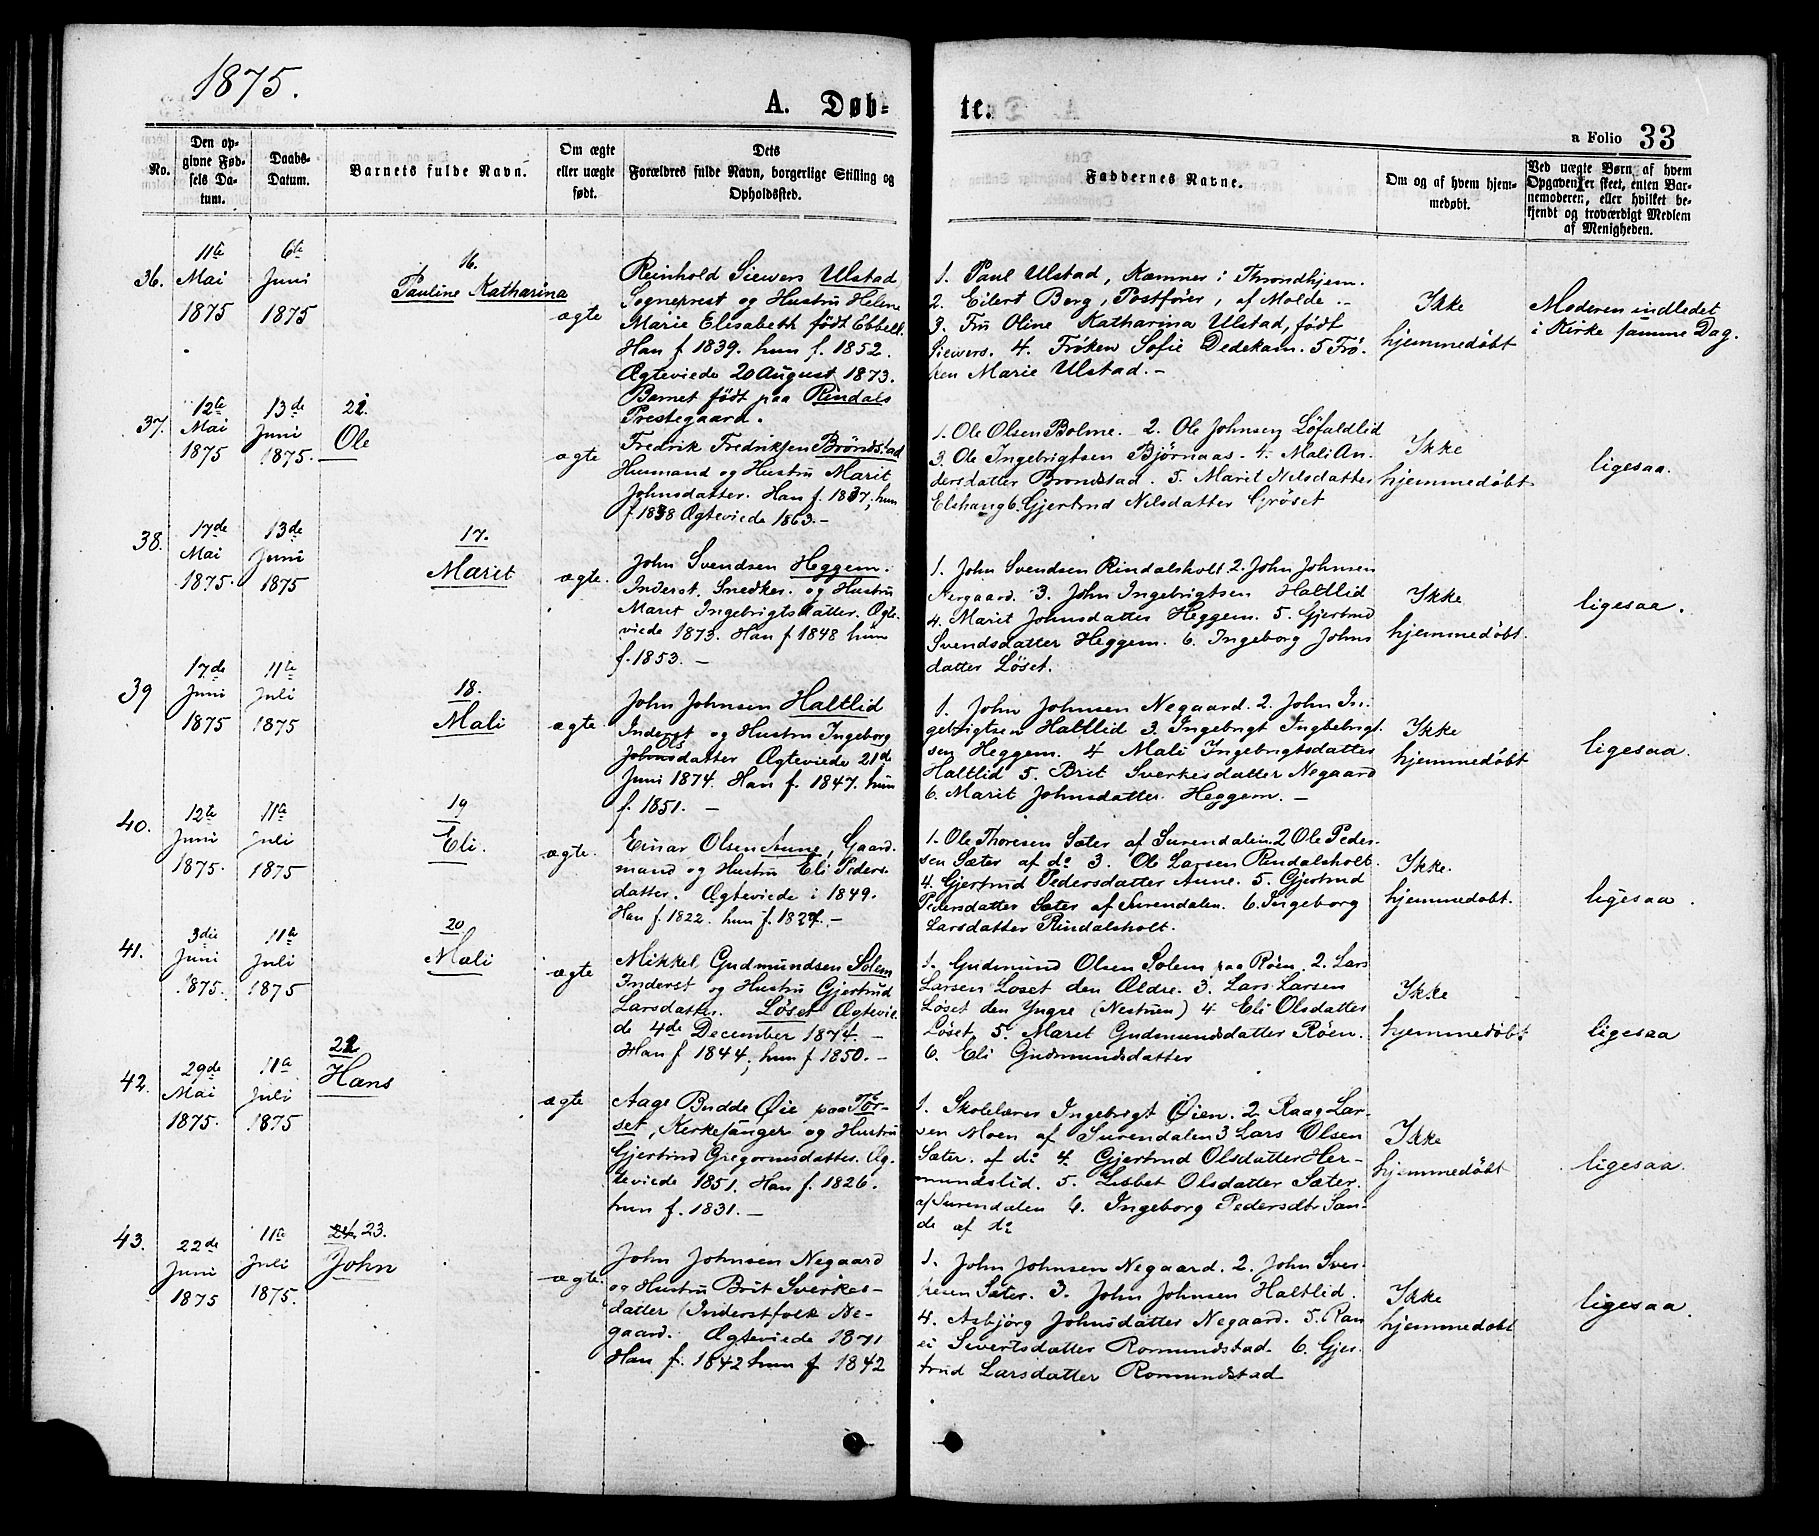 1875.
A. Døb-
te.
a Folio 33
No.
Den op-
givne Fød-
sels Da-
tum.
Daabs-
Datum.
Barnets fulde Navn.
Om ægte
eller uægte
født.
Dets
Forældres fulde Navn, borgerlige Stilling og
Opholdssted.
Faddernes Navne.
Om og af hvem hjem-
medøbt.
Ved uægte Børn, af hvem
Opgaven er skeet, enten Bar-
nemoderen, eller hvilket be-
kjendt og troværdigt Medlem
af Menigheden.
36.
11te
Mai
1875
6te
Juni
1875
16.
Pauline Katharina
ægte
Reinhold Siewers Ulstad
Sogneprest og Hustru Helene
Marie Elisabeth født Ebbelt.
Han f 1839. hun f. 1852.
Ægteviede 20 August 1873.
Barnet født paa Rindals
Prestegaard.
1. Paul Ulstad, Kæmner i Throndhjem.
2. Eilert Borg, Postfører, af Molde.-
3. Fru Oline Katharina Ulstad, født
Siewers. 4. Frøken Sofie Dedekam. 5 Frø-
ken Marie Ulstad.-
Ikke
hjemmedøbt
Moderen indledet
i Kirke samme Dag.
37.
12te
Mai
1875
13de
Juni
1875.
Ole
ægte
Fredrik Fredriksen Brøndstad
Husmand og Hustru Marit
Johnsdatter. Han f. 1837, hun
f. 1838 Ægteviede 1863.-
1. Ole Olsen Bolme. 2. Ole Johnsen Løfaldlid
3. Ole Ingebrigtsen Bjørnaas. 4. Mali An-
dersdatter Brøndstad. 5. Marit Nilsdatter
Elshaug 6. Gjertrud Nilsdatter Grøset
Ikke
hjemmedøbt
ligesaa.
38.
17de
Mai
1875.
13de
Juni
1875
17.
Marit
ægte.
John Svendsen Heggem.
Inderst, Snedker. og Hustru
Marit Ingebrigtsdatter. Ægte-
viede 1873. Han f 1848 hun
f. 1853.-
1. John Svendsen Rindalsholt 2. John Johnsen
Negaard. 3. John Ingebrigtsen Haltlid
4. Marit Johnsdatter Heggem. 5. Gjertrud
Svendsdatter Heggem. 6. Ingeborg Johns
datter Løset.
Ikke
hjemmedøbt.
ligesaa.
39
17de
Juni
1875
11te
Juli
1875
18.
Mali
ægte.
John Johnsen Haltlid
Inderst og Hustru Ingeborg
Ols
Johnsdatter Ægteviede 21de
Juni 1874. Han f. 1847. hun
f. 1851.-
1. John Johnsen Negaard. 2. John In-
gebrigtsen Haltlid 3. Ingebrigt Ingbebrigt-
sen Heggem. 4 Mali Ingebrigtsdatter
Haltlid 5. Brit Sverkesdatter Negaard
6. Marit Johnsdatter Heggem.-
Ikke
hjemmedøbt
ligesaa.
40.
12te
Juni
1875.
11te
Juli
1875
19
Eli.
ægte.
Einar Olsen Aune, Gaard-
mand og Hustru Eli Peders-
datter. Ægteviede i 1849.
Han f. 1822. hun f. 1827.-
1. Ole Thoresen Sæter af Surendalen 2 Ole Peder-
sen Sæter af do 3. Ole Larsen Rindalsholt.
4. Gjertrud Pedersdatter Aune. 5. Gjertrud
Pedersdatter Sæter af Surendalen. 6. Ingeborg
Larsdatter Rindalsholt.
Ikke.
hjemmedøbt.
ligesaa.
41.
3die
Juni
1875.
11te
Juli
1875
20
Mali
ægte
Mikkel Gudmundsen Solem
Inderst og Hustru Gjertrud
Larsdatter. Løset Ægtevie-
de 4de December 1874.-
Han f 1844, hun f 1850.-
1. Gudmund Olsen Solem paa Røen. 2. Lars
Larsen Løset den Ældre. 3. Lars Larsen
Løset den Yngre (Nestuen) 4 Eli Olsdatter
Løset, 5. Marit Gudmundsdatter Røen.
6. Eli Gudmundsdatter
Ikke
hjemmedøbt
ligesaa
42.
29de
Mai
1875.
11te
Juli
1875
Hans
ægte
Aage Budde Øie paa Tør-
set, Kirkesanger og Hustru
Gjertrud Gregoriusdatter. Æg-
teviede 1851. Han f. 1826.
hun f. 1831.-
1. Skolelærer Ingebrigt Øien. 2. Raag Lar-
sen Moen af Surendalen 3 Lars Olsen
Sæter. af do 4. Gjertrud Olsdatter Her-
mundslid. 5. Lisbet Olsdatter Sæter.
af Surendalen 6. Ingeborg Pedersdtr San-
de af do
Ikke
hjemmedøbt
ligesaa.
43.
22de
Juni
1875
11te
Juli
1875.
24. 23.
John
ægte.
John Johnsen Negaard
og Hustru Brit Sverkes-
datter (Inderstfolk Ne-
gaard. Ægteviede 1871
Han f. 1842 hun f 1842
1. John Johnsen Negaard. 2. John Sver-
kesen Sæter. 3. John Johnsen Haltlid.
4. Asbjørg Johnsdatter Negaard. 5. Ran
ei Sivertsdatter Romundstad. 6. Gjer-
trud Larsdatter Romundstad
Ikke
hjemmedøbt
ligesaa.